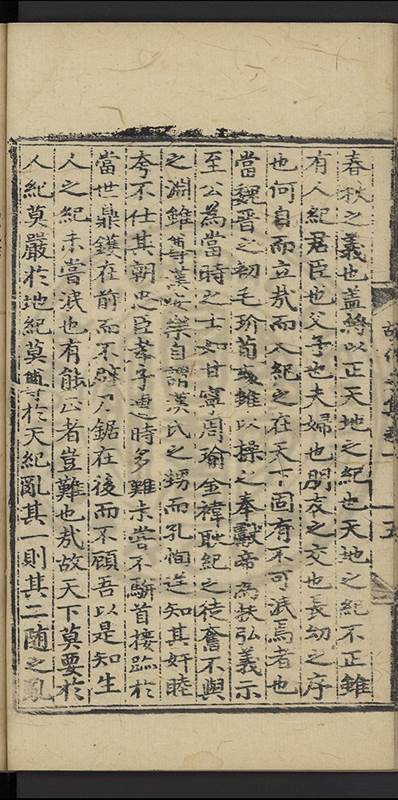 春秋之義也盖將以正天地之紀也天地之紀不正雖
有人紀君臣也父子也夫婦也朋友之交也長幼之序
也何自而立㢤而人紀之在天下固有不可泯焉者也
當魏晋之初毛玠荀彧雖以操之奉獻帝為扶弘義示
至公為當時之士如甘寧周瑜金禕耿紀之徒奮不與
之淵雖尊漢安崇自謂漢氏之甥而孔恂逆知其奸睦
夸不仕其朝忠臣孝子連時多難未嘗不駢首接踵於
當世鼎鑊在前而不避刀鋸在後而不顧吾以是知生
人之紀未嘗泯也有能正者豈難也㢤故天下莫要於
人紀莫嚴於地紀莫尊於天紀亂其一則其二随之亂